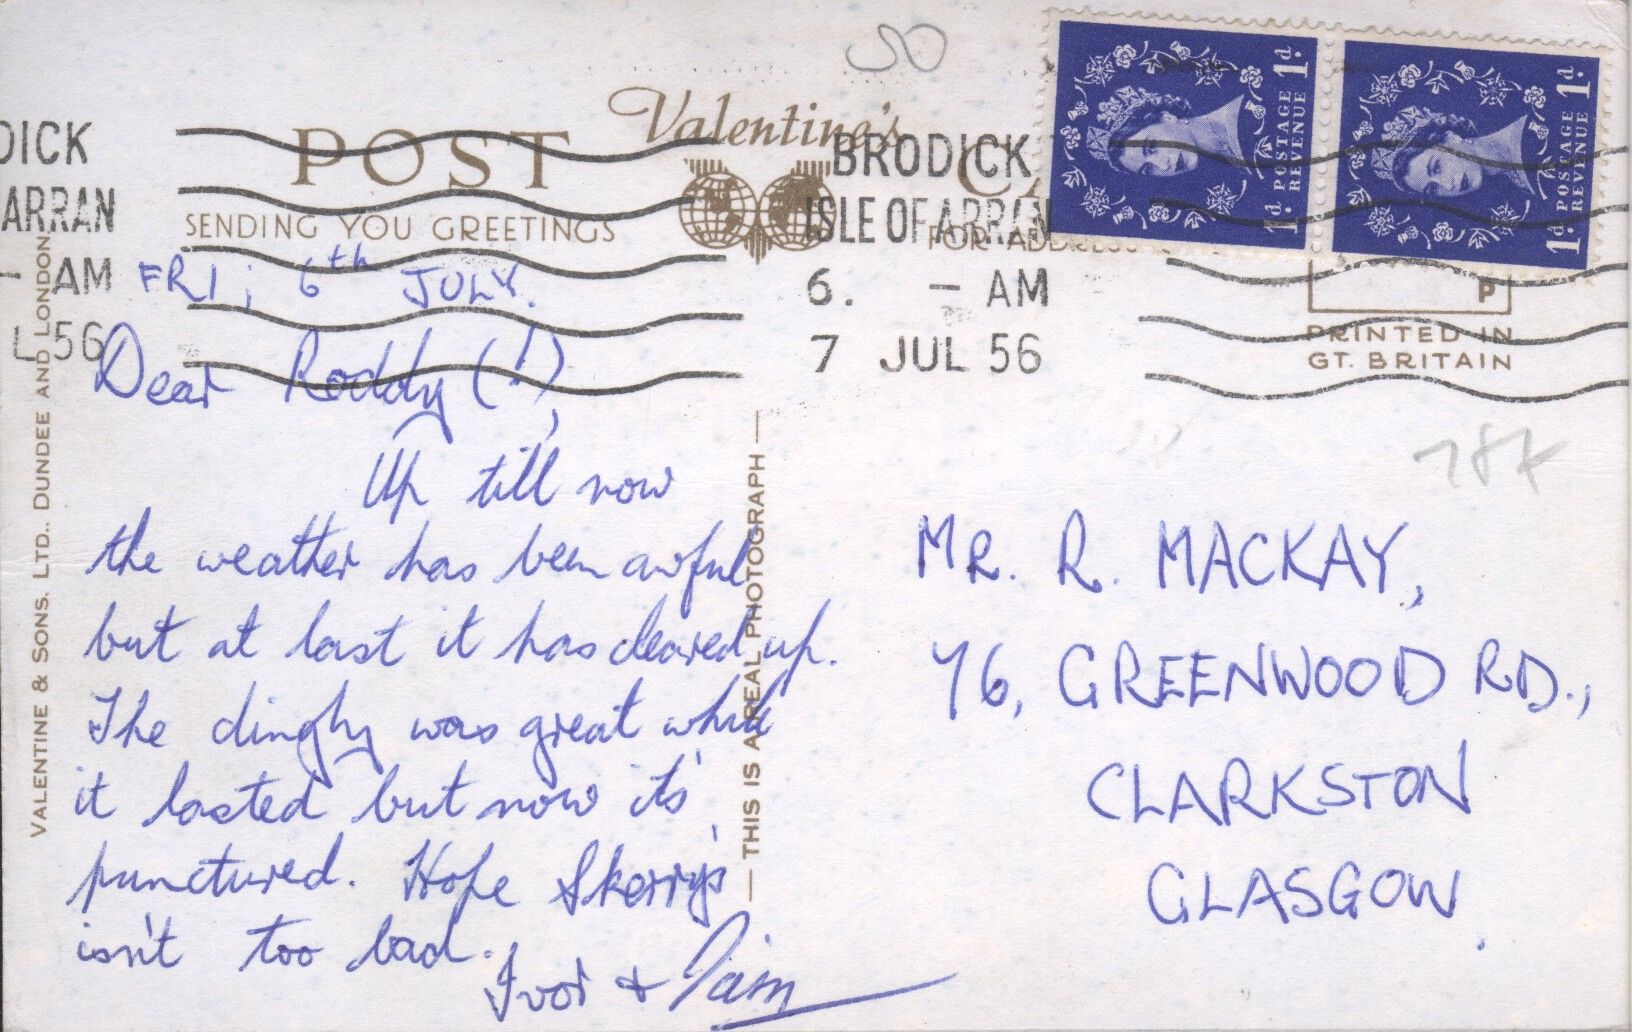 50
Valentine's
POST CA
SENDING YOU GREETINGS
FOR ADDRESS
DICK
ARRAN
- AM
L 56
BRODICK
ISLE OF ARRAN
6. - AM
7 JUL 56
1d. POSTAGE 1d.
REVENUE
1d. POSTAGE 1d.
REVENUE
P
PRINTED IN
GT. BRITAIN
VALENTINE & SONS. LTD., DUNDEE AND LONDON
— THIS IS A REAL PHOTOGRAPH —
FRI; 6th JULY.
Dear Roddy (!),
Up till now
the weather has been awful
but at last it has cleared up.
The dinghy was great while
it lasted but now it's
punctured. Hope Skerry's
isn't too bad.
Ivor +
MR. R. MACKAY,
76, GREENWOOD RD.,
CLARKSTON
GLASGOW.